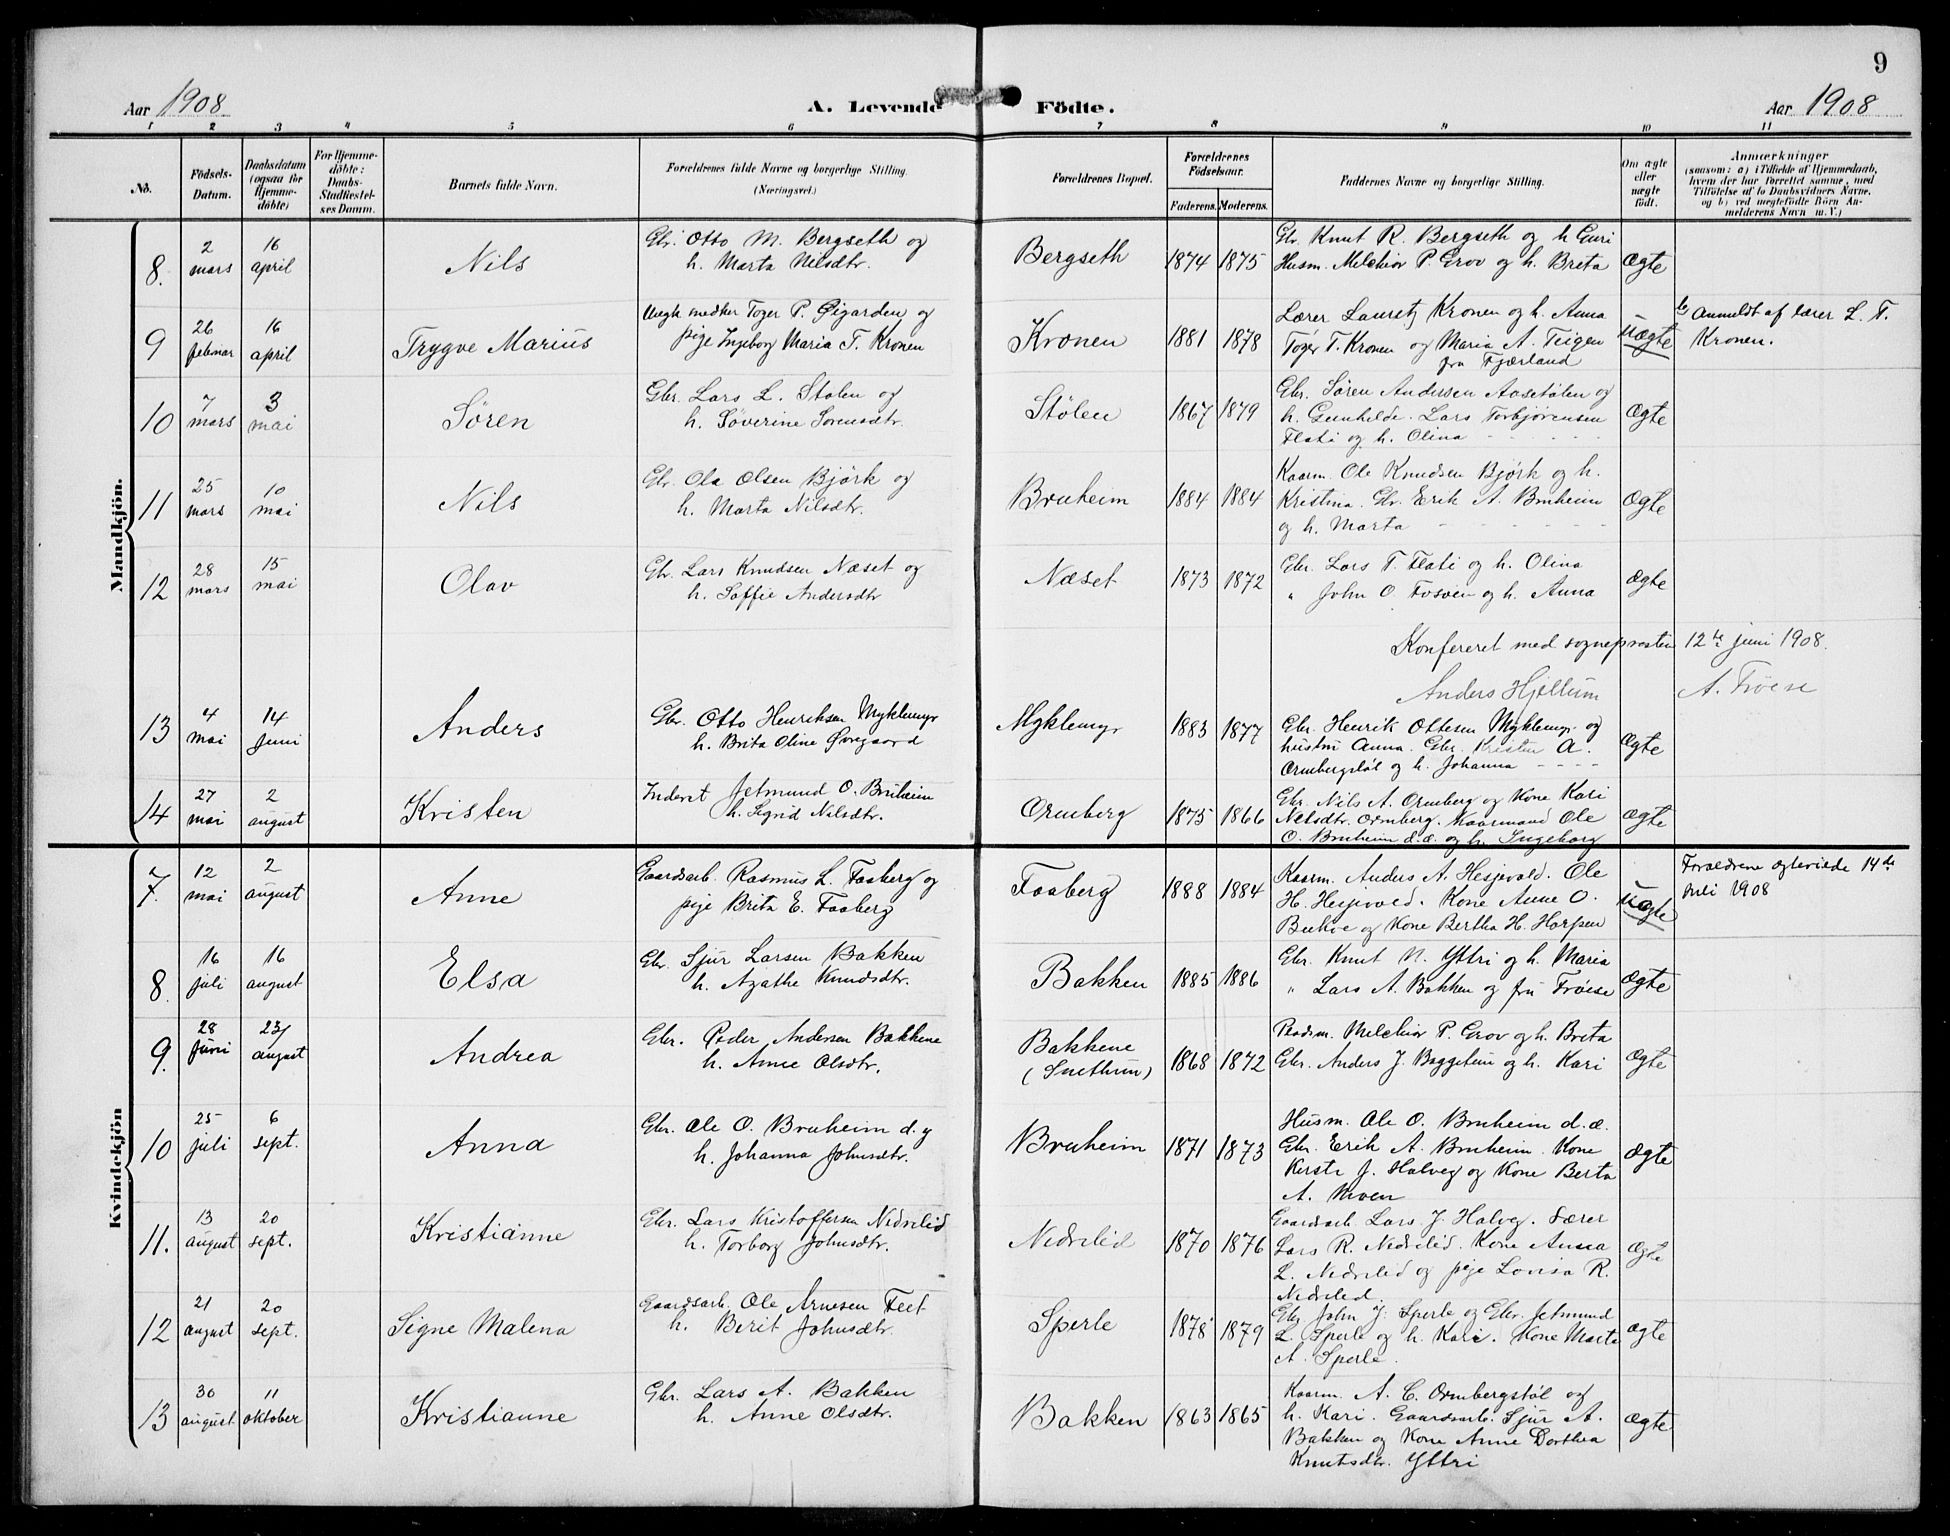 9
Aar 1908
A. Levende Födte.
Aar 1908
1 2 3 4 5 6 7 8 9 10 11
No.
Födsels-Datum.
Daabsdatum (ogsaa for Hjemme-döbte)
For Hjemme-döbte: Daabs-Stadfæstel-ses Datum.
Barnets fulde Navn.
Forældrenes fulde Navne og borgerlige Stilling. (Næringsvei.)
Forældrenes Bopæl.
Forældrenes Födselsaar.
Faderens. Moderens.
Faddernes Navne og borgerlige Stilling.
Om ægte eller uægte födt.
Anmærkninger
(saasom: a) i Tilfælde af Hjemmedaab,
hvem der har forrettet samme, med
Tilföielse af to Daabsvidners Navne,
og b) ved uægtefödte Börn An-
melderens Navn m. V.)
Mandkjön.
8. 2 mars 16 april Nils
Gbr. Otto M. Bergseth og
h. Marta Nilsdtr.
Bergseth 1874 1875
Gbr. Knut R. Bergseth og h Guri
Husm. Melchior P. Grov og h. Breta
Ægte
9 26 februar 16 april Trygve Marius
Ungk medker Toger P. Øigarden og
pige Ingeborg Maria T. Kronen
Kronen 1881 1878
Lærer Lauretz Kronen og h. Anna
Toger T. Kronen og Maria A. Teigen
fra Fjærland
Uægte
Anmeldt af lærer L. T.
Kronen.
10 7 mars 3 mai Søren
Gbr. Lars L. Stølen og
h. Søverine Sørensdtr.
Stølen 1867 1879
Gbr. Søren Andersen Aasetølen og
h. Gunhilde. Lars Torbjørensen
Flati og h. Olina
Ægte
11 25 mars 10 mai Nils
Gbr. Ola Olsen Bjørk og
h. Marta Nilsdtr.
Bruheim 1884 1884
Kaarm. Ole Knudsen Bjørk og h.
Kristina. Gbr. Erik A. Bruheim
og h. Marta
Ægte
12 28 mars 15 mai Olav
Gbr. Lars Knudsen Næset og
h. Soffie Andersdtr
Næset 1873 1872
Gbr. Lars T. Flati og h. Olina
" John O. Fosven og h. Anna
Ægte
Konfereret med sogneprosten 12te juni 1908.
Anders Hjellum A. Trøese
13 4 mai 14 Juni Anders
Gbr. Otto Henriksen Myklemyr
h. Brita Oline Øvregaard
Myklemyr 1883 1877
Gbr. Henrik Ottesen Myklemyr og
hustru Anna. Gbr. Kristen A.
Ormbergstøl og h. Johanna
Ægte
14 27 mai 2 august Kristen
Inderst Jetmund O. Bruheim
h. Sigrid Nilsdtr.
Ormberg 1875 1866
Gbr. Nils A. Ormberg og Kone Kari
Nelsdtr. Ormberg. Kaarmand Ole
O. Bruheim d.æ. og h. Ingeborg
Ægte
Kvindekjön
7. 12 mai 2 august Anne
Gaardsarb. Rasmus L. Faaberg og
pige Brita E. Faaberg
Faaberg 1888 1884
Kaarm. Anders A. Hesjevold. Ole
H. Hesjevold. Kone Anne O.
Bukve og Kone Bertha H. Harpen
Uægte
Forældrene ægteviede 14de
juli 1908
8. 16 juli 16 august Elsa
Gbr. Sjur Larsen Bakken
h. Agathe Knudsdtr.
Bakken 1885 1886
Gbr. Knut N. Yttri og h. Maria
" Lars A. Bakken og fru Trøese
Ægte
9. 28 Juni 23 august Andrea
Gbr. Peder Andersen Bakkene
h. Anne Olsdtr.
Bakkene
(Snethun) 1868 1872
Pladsm. Melchior P. Grov og h. Brita
Gbr. Anders J. Baggetun og h. Kari
Ægte
10 25 juli 6 sept. Anna
Gbr. Ole O. Bruheim d. y
h. Johanna Johnsdtr.
Bruheim 1871 1873
Husm. Ole O. Bruheim d. æ.
Gbr. Erik A. Bruheim. Kone
Kersti J. Halveg og Kone Berta
A. Moen
Ægte
11. 13 august 20 sept. Kristianne
Gbr. Lars Kristoffersen Nedrelid
h. Torborg Johnsdtr.
Nedrelid 1870 1876
Gaardsarb. Lars J. Halveg. Lærer
Lars R. Nedrelid. Kone Anna
L. Nedrelid og pige Lovisa R.
Nedrelid.
Ægte
12 21 august 20 sept. Signe Malena
Gaardsarb. Ole Arnesen Feet
h. Berit Johnsdtr.
Sperle 1878 1879
Gbr John J. Sperle og Gbr. Jetmund
L. Sperle og h. Kari. Kone Marta
A. Sperle.
Ægte
13 30 august 11 oktober Kristianne
Gbr. Lars A. Bakken
h. Anne Olsdtr.
Bakken 1863 1865
Kaarm. A. C. Ormbergstøl og
h. Kari. Gaardsarb. Sjur A.
Bakken og Kone Anne Dorthea
Knutsdtr. Yttri
Ægte